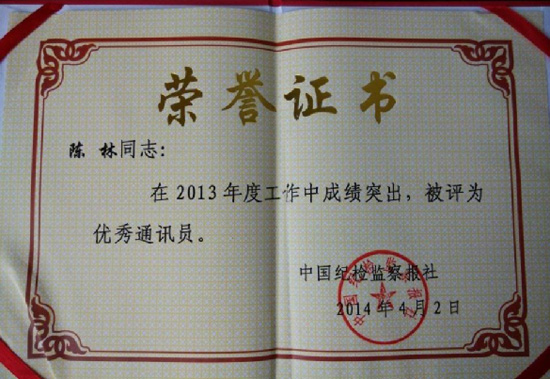 荣誉证书
陈 林同志：
在2013年度工作中成绩突出，被评为
优秀通讯员。
中国纪检监察报社
2014年4月2日
中国纪检监察报社